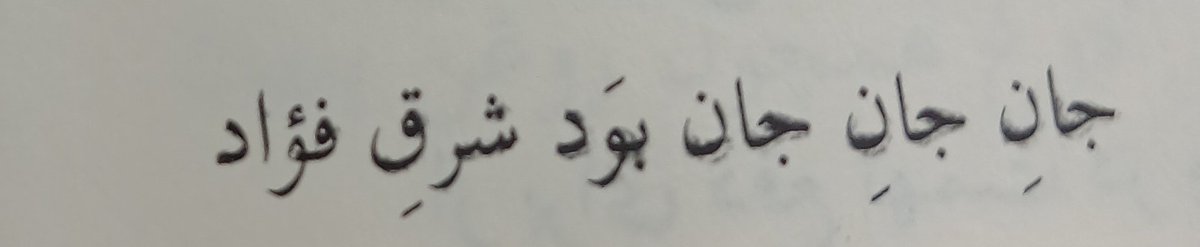 جانِ جانِ جان بوَد شرقِ فؤاد